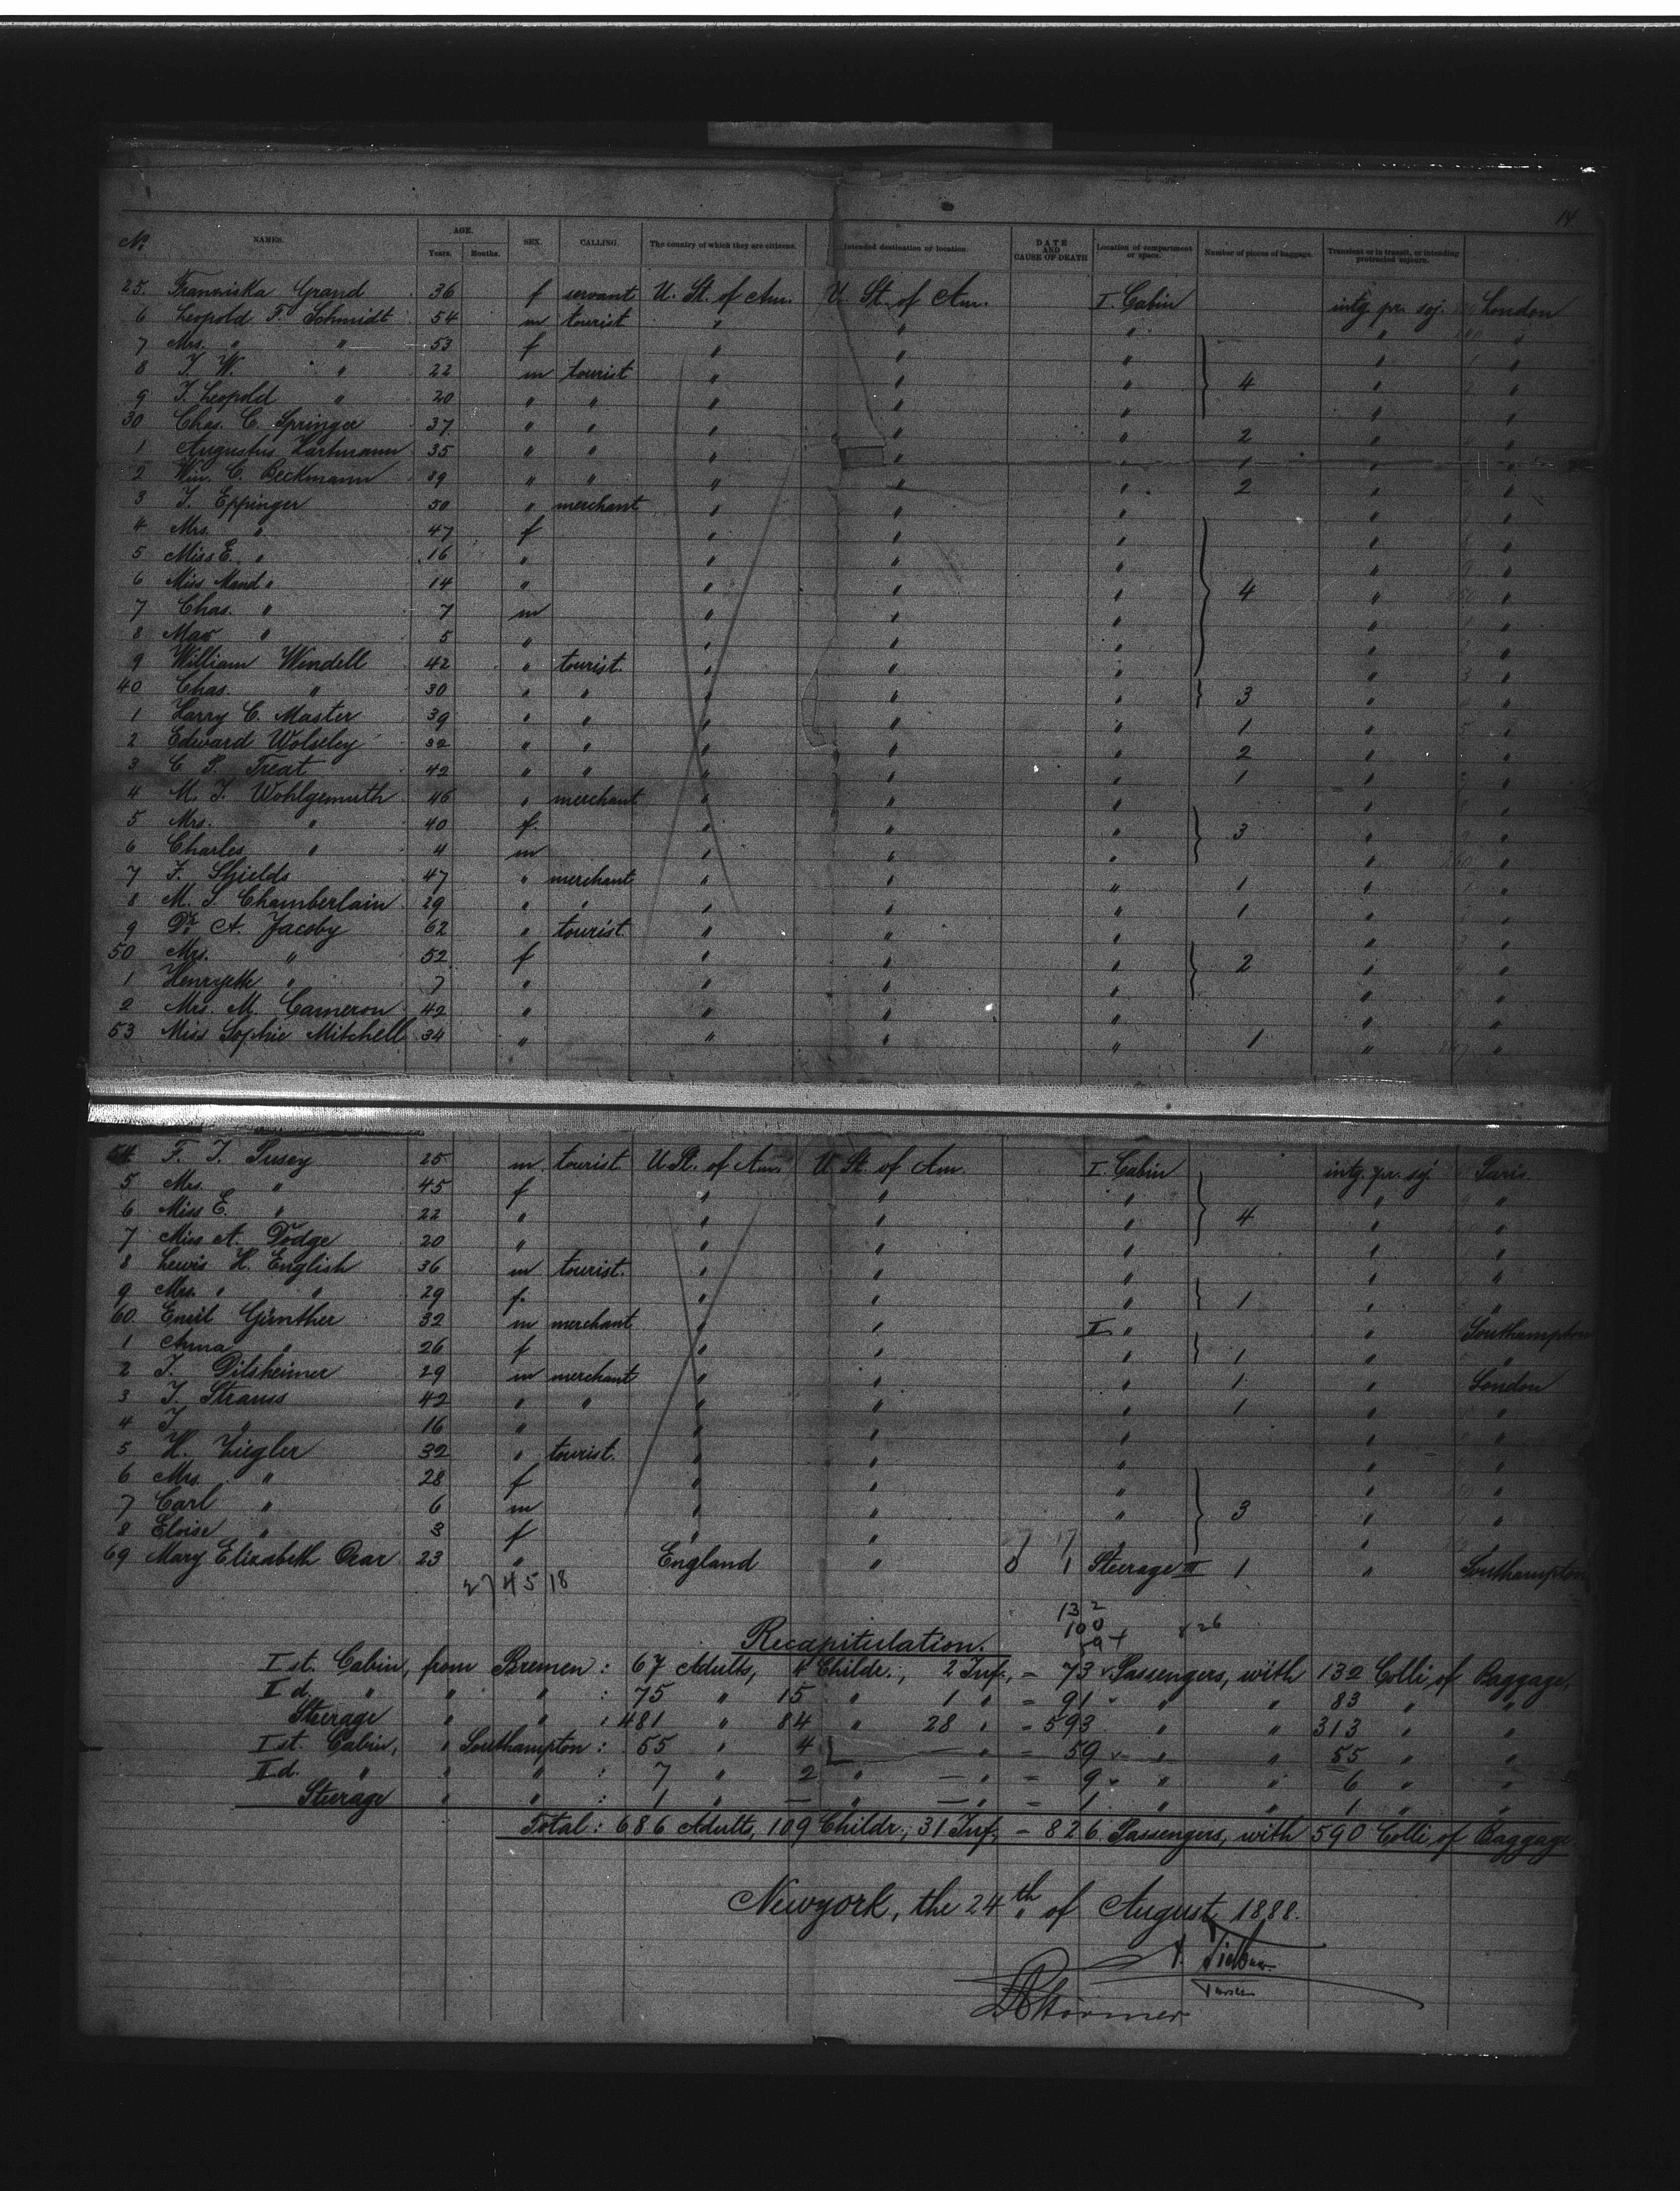 14
No. NAMES. AGE. Years. Months. SEX. CALLING. The country of which they are citizens. Intended destination or location. DATE AND CAUSE OF DEATH Location of compartment or space. Number of pieces of baggage. Transient or in transit, or intending protracted sojourn.
25. Franziska Grand 36 f servant U. St. of Am. U. St. of Am. I. Cabin intg. pr. soj. London
6 Leopold F. Schmidt 54 m tourist " " " " "
7 Mrs. " " 53 f " " " " "
8 J. W. " 22 m tourist " " " 4 " "
9 J. Leopold " 20 " " " " " " "
30 Chas. C. Springer 37 " " " " " 2 " "
1 Augustus Hartmann 35 " " " " " 1 " "
2 Wm. C. Beckmann 39 " " " " " 2 " "
3 J. Eppinger 50 " merchant " " " " "
4 Mrs. " 47 f " " " " "
5 Miss E. " 16 " " " " " "
6 Miss Maud " 14 " " " " 4 " "
7 Chas. " 7 m " " " " "
8 Max " 5 " " " " " "
9 William Wendell 42 " tourist. " " " " "
40 Chas. " 30 " " " " " 3 " "
1 Harry C. Master 39 " " " " " 1 " "
2 Edward Wolseley 32 " " " " " 2 " "
3 C. P. Treat 42 " " " " " 1 " "
4 M. J. Wohlgemuth 46 " merchant " " " " "
5 Mrs. " 40 f. " " " 3 " "
6 Charles " 4 m " " " " "
7 F. Shields 47 " merchant " " " 1 " "
8 M. S. Chamberlain 29 " " " " " 1 " "
9 Dr. A. Jacoby 62 " tourist. " " " " "
50 Mrs. " 52 f " " " 2 " "
1 " 7 " " " " " "
2 Mrs. M. Cameron 42 " " " " " "
53 Miss Sophie Mitchell 34 " " " " 1 " "
54 F. J. Pusey 25 m tourist U. St. of Am. U. St. of Am. I. Cabin intg. pr. soj. Paris.
5 Mrs. " 45 f " " " " "
6 Miss E. " 22 " " " " 4 " "
7 Miss A. Dodge 20 " " " " " "
8 Lewis H. English 36 m tourist. " " " " "
9 Mrs. " " 29 f. " " " 1 " "
60. Emil Günther 32 m merchant " " II " " Southampton
1 Anna " 26 f " " " 1 " "
2 J. Dilsheimer 29 m merchant " " " 1 " London
3 J. Strauss 42 " " " " " 1 " "
4 J. " 16 " " " " " "
5 H. Ziegler 32 " tourist. " " " " "
6 Mrs. " 28 f " " " " "
7 Carl " 6 m " " " 3 " "
8 Eloise " 3 f " " " "
69 Mary Elizabeth 23 " England " 1 Steerage III 1 " Southampton
27 45 18
132
100
826
Recapitulation.
I st. Cabin, from Bremen: 67 Adults, 4 Childr., 2 Inf., = 73 Passengers, with 132 Colli of Baggage,
II d. " " " : 75 " 15 " 1 " = 91 " " 83 " "
Steerage " " : 481 " 84 " 28 " = 593 " " 313 " "
I st. Cabin, " Southampton: 55 " 4 " — " = 59 " " 55 " "
II d. " " " : 7 " 2 " — " = 9 " " 6 " "
Steerage " " : 1 " — " — " = 1 " " 1 " "
Total: 686 Adults, 109 Childr., 31 Inf., = 826 Passengers, with 590 Colli, of Baggage
Newyork, the 24th of August 1888.